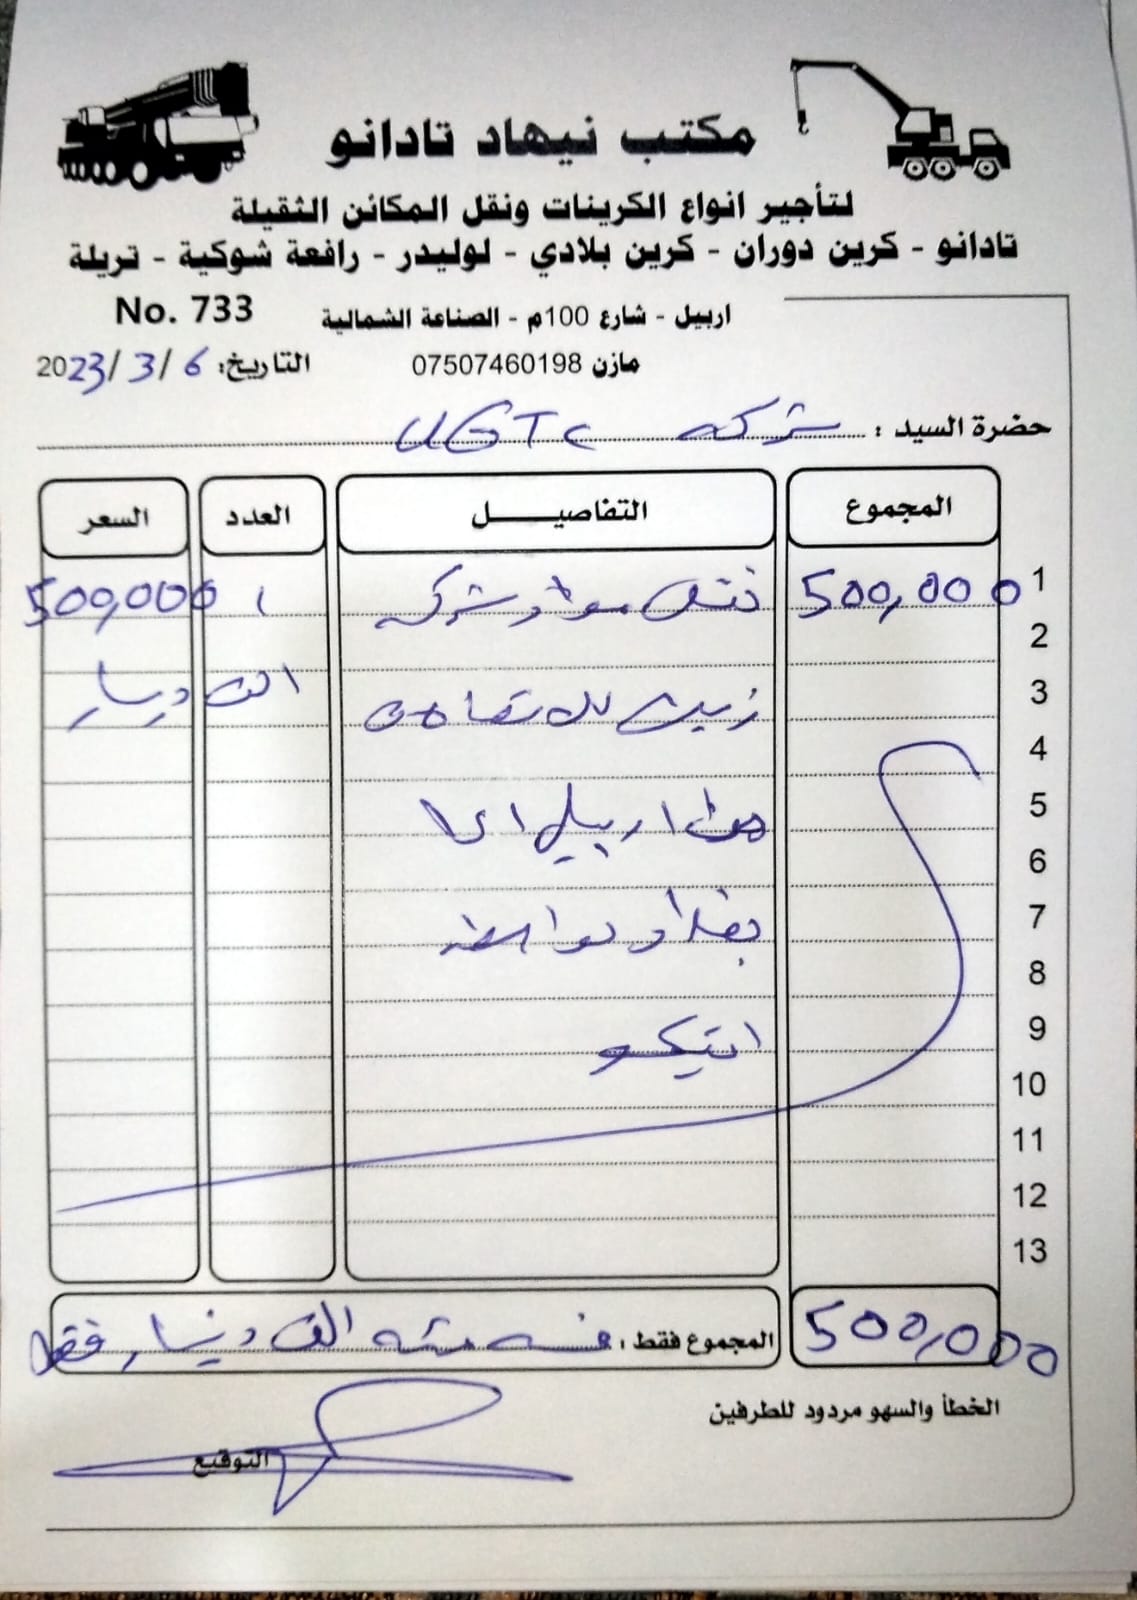 مكتب نيهاد تادانو
لتأجير انواع الكرينات ونقل المكائن الثقيلة
تادانو - كرين دوران - كرين بلادي - لوليدر - رافعة شوكية - تريلة
اربيل - شارع 100م - الصناعة الشمالية No. 733
مازن 07507460198 التاريخ: 2023/3/6
حضرة السيد : شركه UGTC
المجموع التفاصيل العدد السعر
1 500,000 نقل مواد شركه 1 500,000
2
3 زين للاتصالات الف دينار
4
5 من اربيل الى
6
7 بغداد بواسطه
8
9
10
11
12
13
500,000 المجموع فقط : خمسه مئه الف دينار فقط
الخطأ والسهو مردود للطرفين
التوقيع